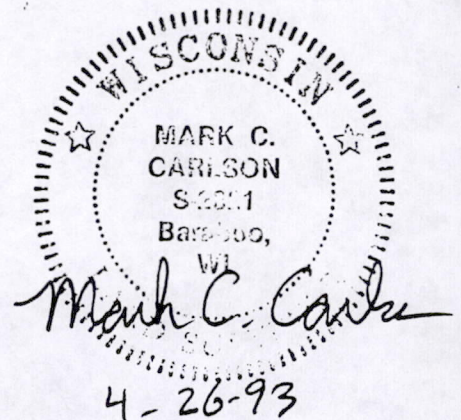 WISCONSIN
MARK C.
CARLSON
Baraboo,
WI
Mark C. Carlson
4-26-93